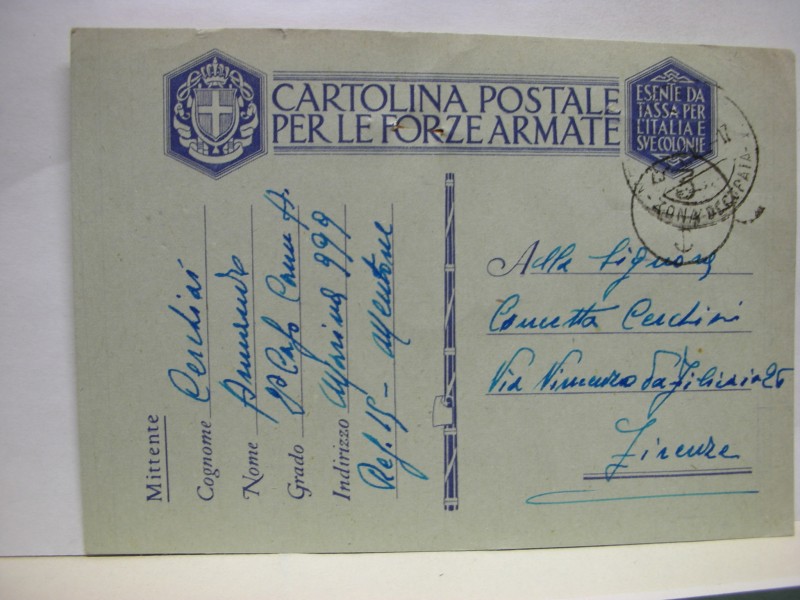 CARTOLINA POSTALE
PER LE FORZE ARMATE
ESENTE DA
TASSA PER
L'ITALIA E
SVE COLONIE
ZONA OCCVPATA
Mittente
Cognome Cerchini
Nome Armando
Grado 2º Capo
Indirizzo Marina 999
Ref. 15 - Mentone
Alla Signora
Concetta Cerchini
Via Vincenzo da Filicaia 25
Firenze